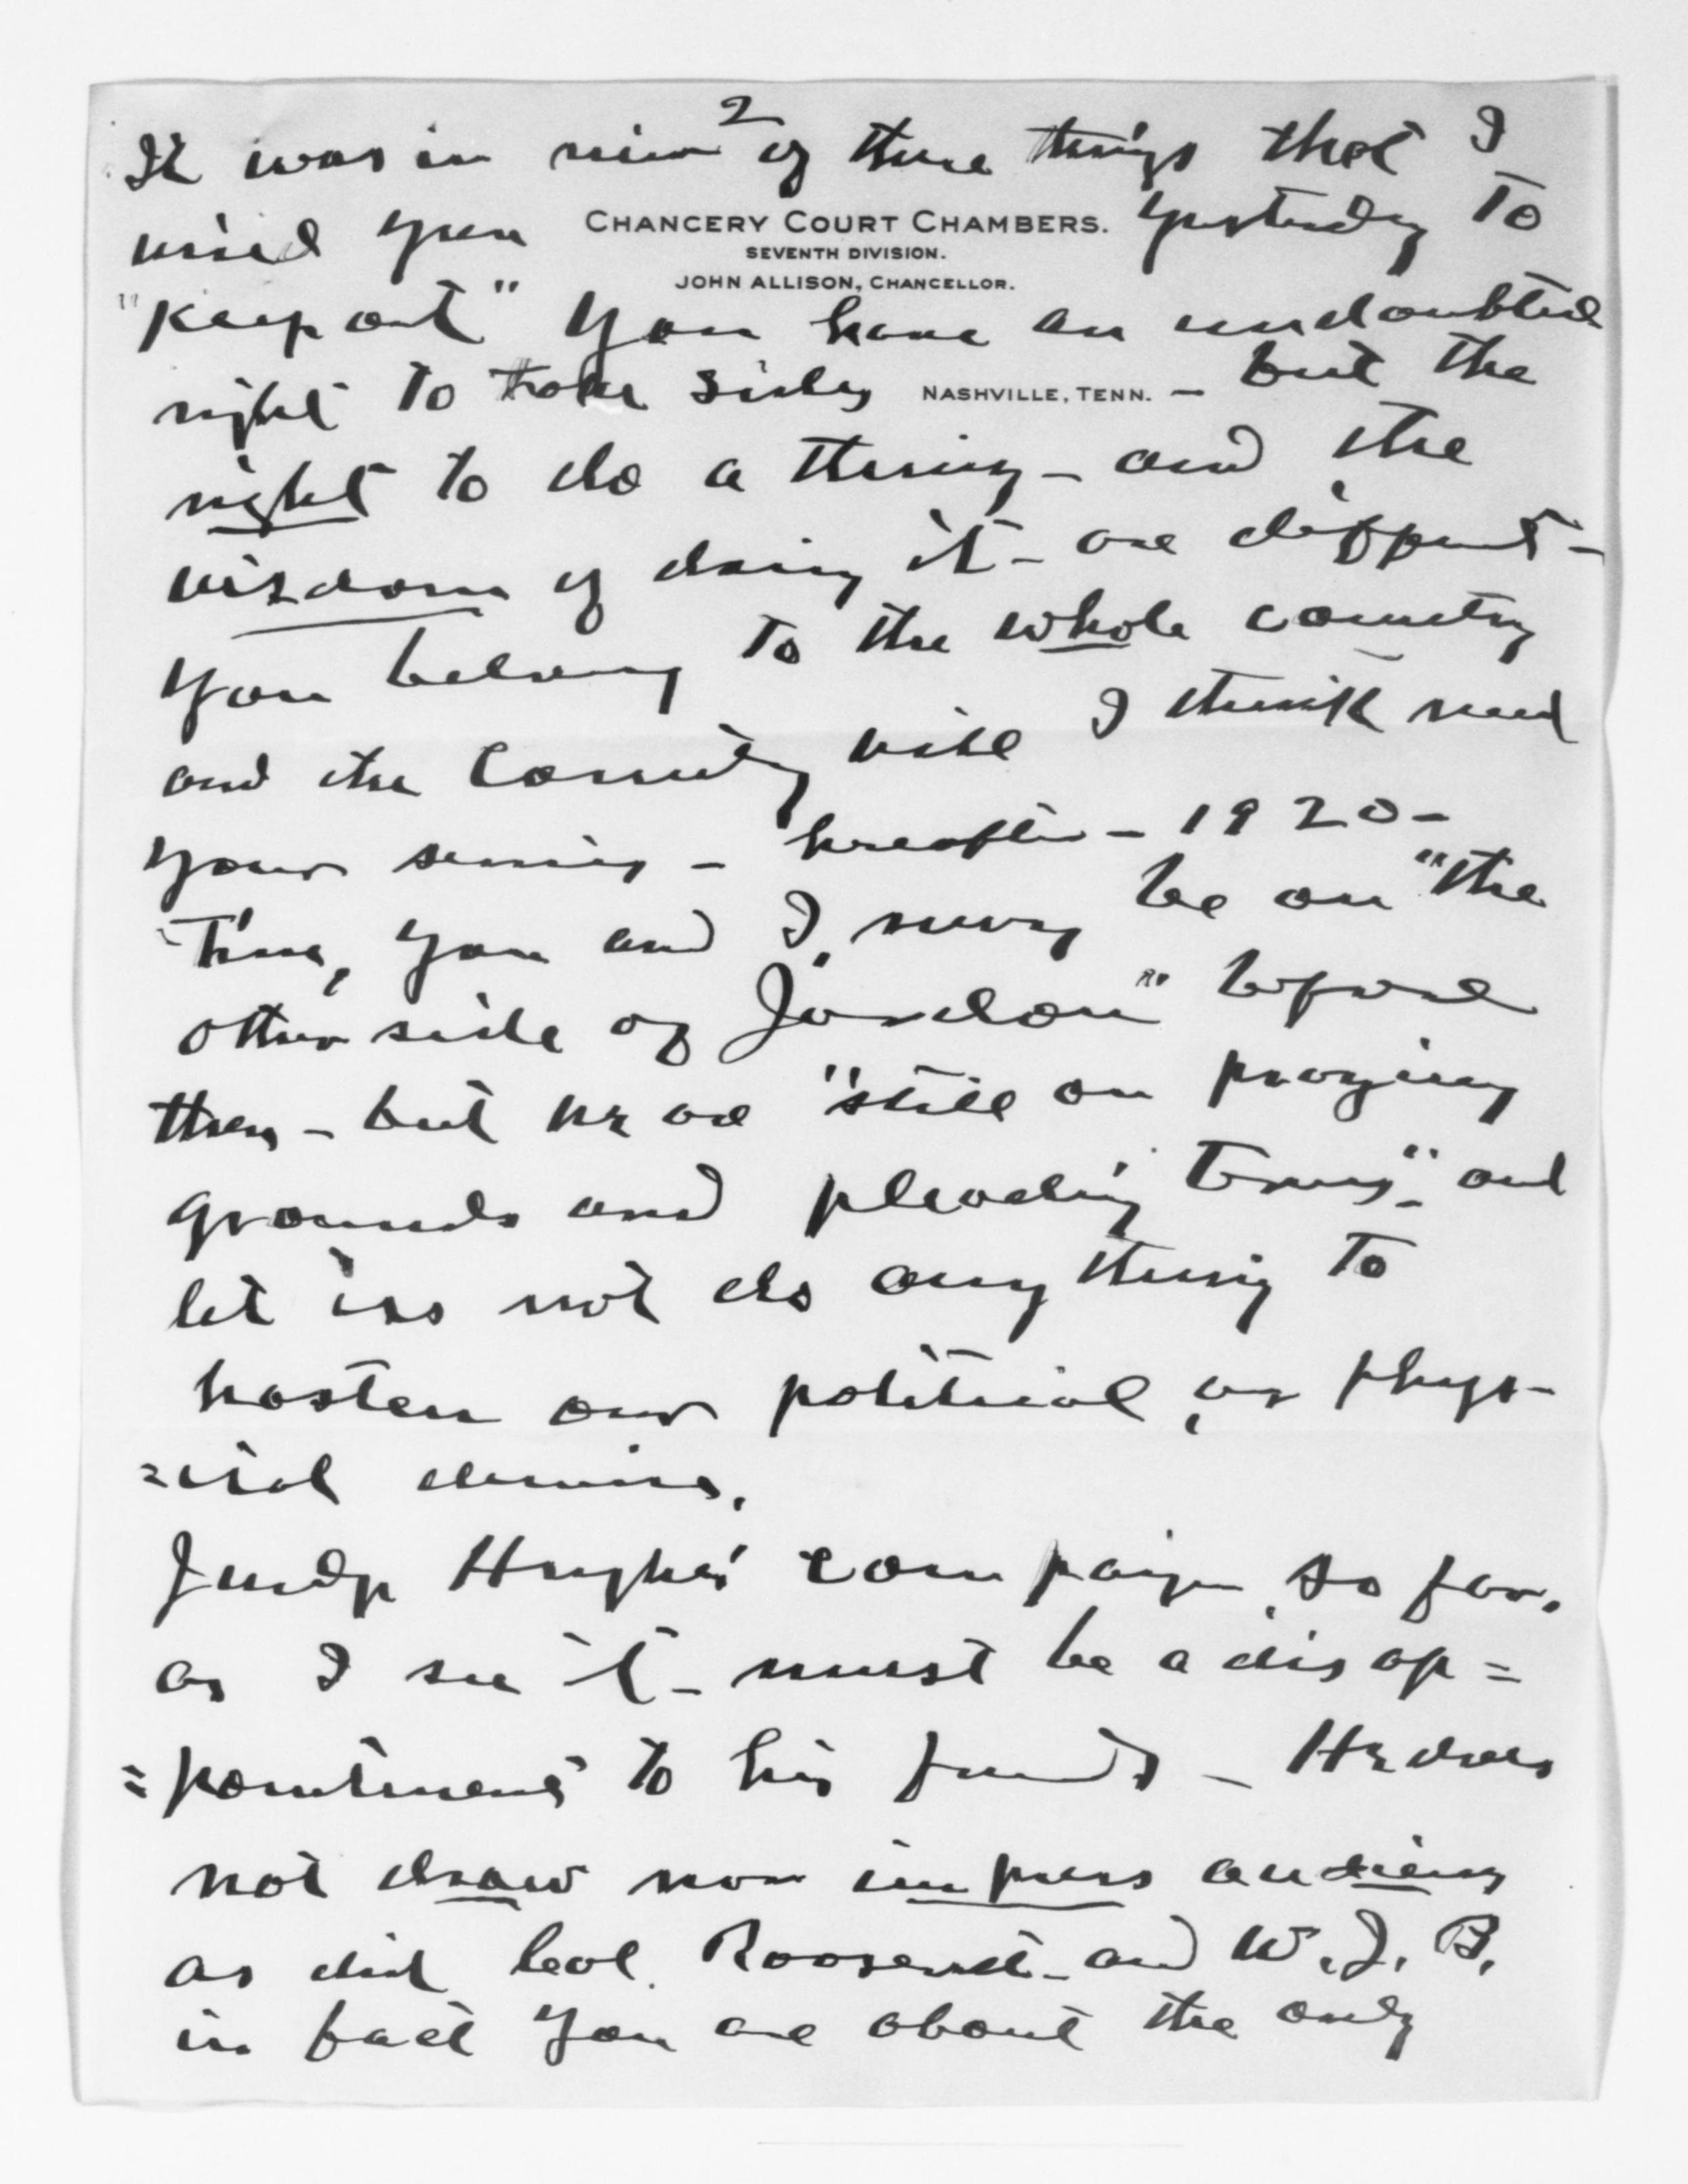 2
It was in view of these things that I
wired you yesterday to
CHANCERY COURT CHAMBERS.
SEVENTH DIVISION.
JOHN ALLISON, CHANCELLOR.
"keep out" You have an undoubted
right to take sides — but the
NASHVILLE, TENN.
right to do a thing — and the
wisdom of doing it — are different —
You belong to the whole country
and the Country will I think need
your services — hereafter — 1920 —
True, you and I, may be on "the
other side of Jordon" before
then — but we are "still on praying
grounds and pleading terms". and
let us not do any thing to
hasten our political, or phys-
=ical demise.
Judge Hughes' campaign, so far,
as I see it — must be a disap=
=pointment to his friends — He does
not draw nor impress audiences
as did Col. Roosevelt — and W. J. B.
in fact you are about the only